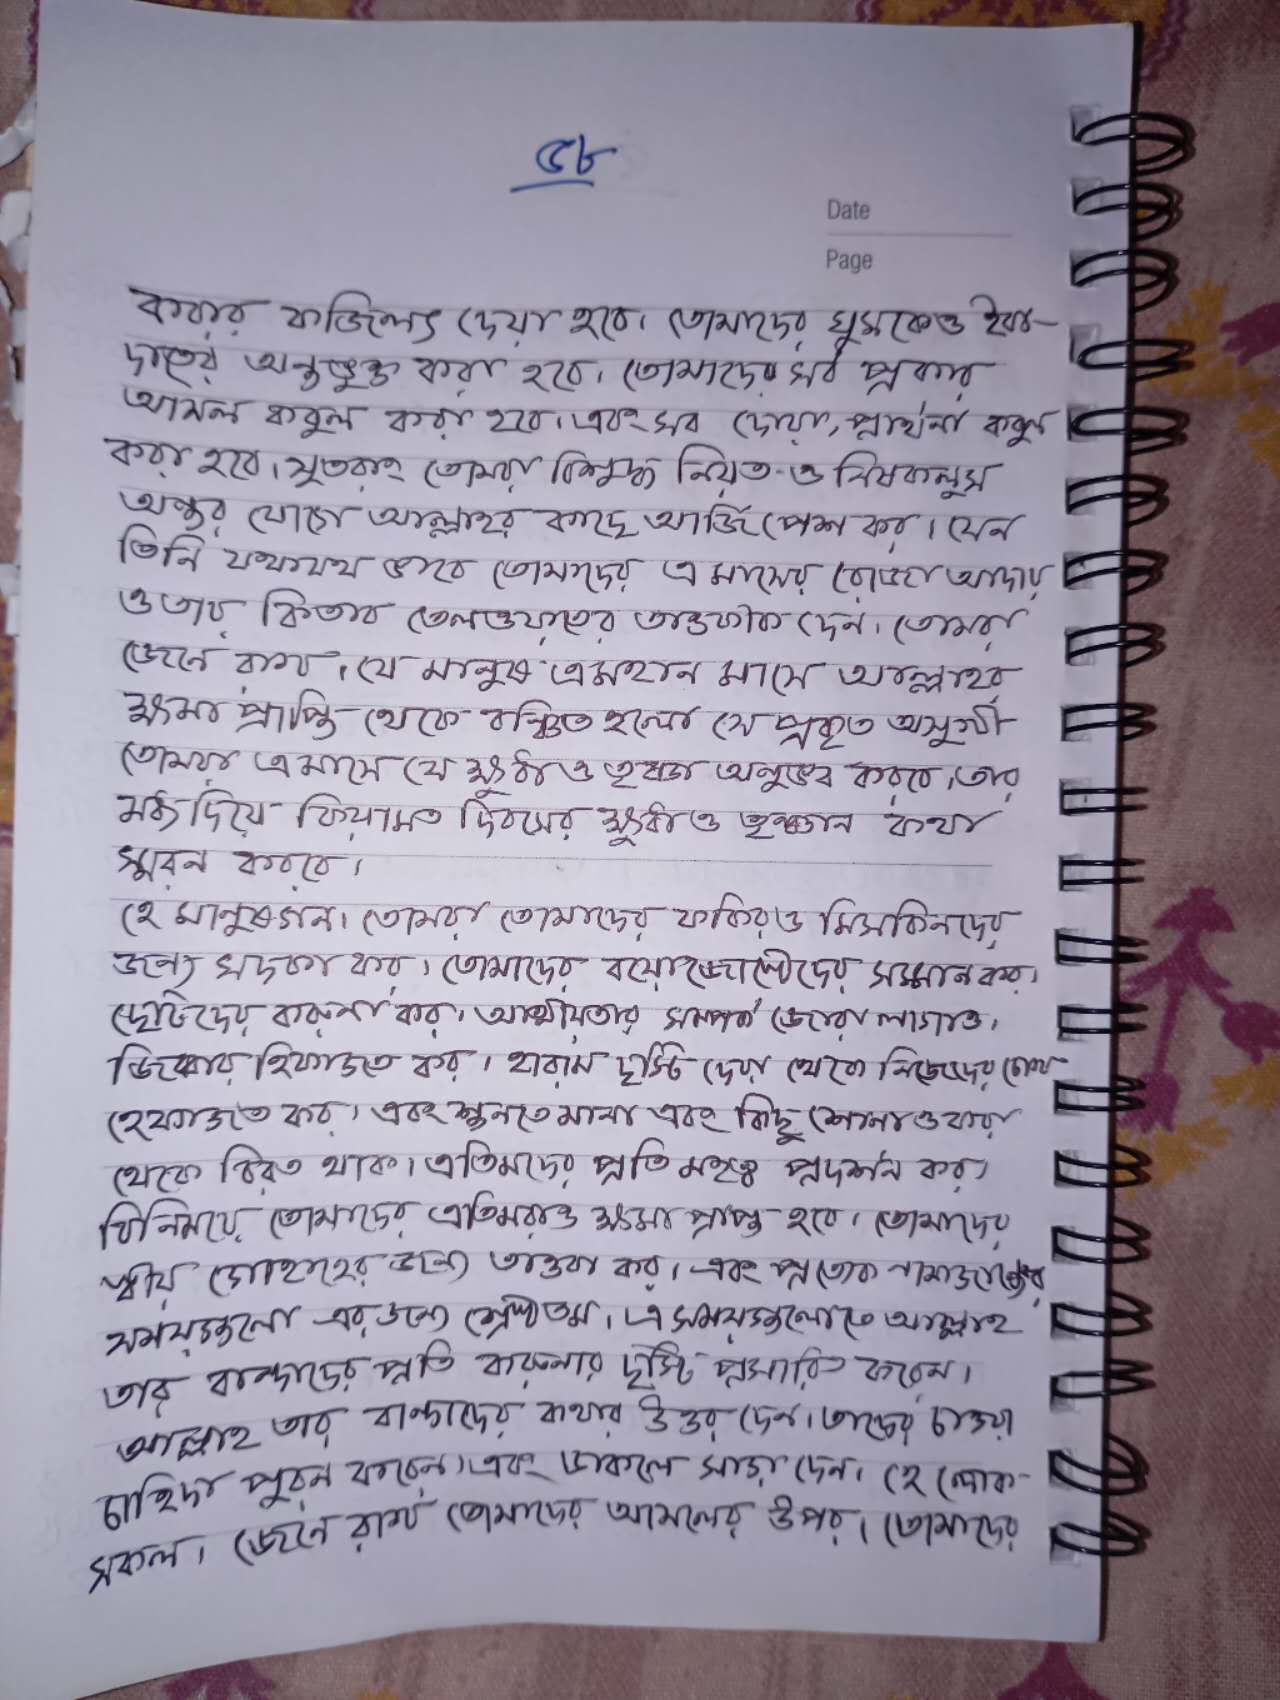 ৫৮
Date
Page
করার ফজিলত দেয়া হবে। তোমাদের ঘুমকেও ইবা-
দাতের অন্তর্ভুক্ত করা হবে। তোমাদের সর্ব প্রকার
আমল কবুল করা হবে। এবং সব দোয়া, প্রার্থনা কবুল
করা হবে। সুতরাং তোমরা বিশুদ্ধ নিয়ত ও নিষকলুস
অন্তর যোগে আল্লাহর কাছে আর্জি পেশ কর। যেন
তিনি যথাযথ ভাবে তোমাদের এ মাসের রোজা আদায়
ও তার কিতাব তেলওয়াতের তাওফীক দেন। তোমরা
জেনে রাখ। যে মানুষ এমহান মাসে আল্লাহর
ক্ষমা প্রাপ্তি থেকে বঞ্চিত হলো সে প্রকৃত অসুখী
তোমরা এ মাসে যে ক্ষুধা ও তৃষ্ণা অনুভব করবে। তার
মধ্য দিয়ে কিয়ামত দিবসের ক্ষুধা ও তৃষ্ণান কথা
স্মরন করবে।
হে মানুষগন। তোমরা তোমাদের ফকির ও মিসকিনদের
জন্যে সদকা কর। তোমাদের বয়োজেষ্ঠেদের সম্মান কর।
ছোটদের করুনা কর। আত্মীয়তার সম্পর্ক জোরা লাগাও।
জিহ্বার হিফাজত কর। হারাম দৃষ্টি দেয়া থেকে নিজেদের চোখ
হেফাজত কর। এবং শুনতে মানা এবং কিছু শোনা ও করা
থেকে বিরত থাক। এতিমদের প্রতি মহত্ব প্রদর্শন কর।
বিনিময়ে তোমাদের এতিমরাও ক্ষমা প্রাপ্ত হবে। তোমাদের
স্বীয় গোনাহের জন্যে তাওবা কর। এবং প্রত্যেক নামাজের
সময়গুলো এর জন্যে শ্রেষ্ঠতম। এ সময়গুলোতে আল্লাহ
তার বান্দাদের প্রতি করুনার দৃষ্টি প্রসারিত করেন।
আল্লাহ তার বান্দাদের কথার উত্তর দেন। তাদের চাওয়া
চাহিদা পুরন করেন। এবং ডাকলে সাড়া দেন। হে লোক-
সকল। জেনে রাখ তোমাদের আমলের উপর। তোমাদের